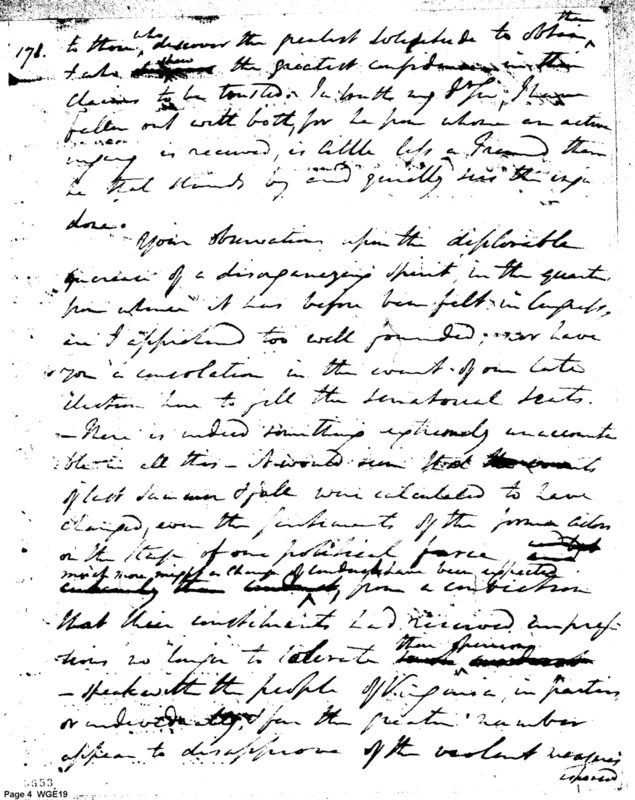 178. to those, who discover the greatest solicitude to obtain them,
& who the greatest confidence in their
claims to be trusted. In truth my Dr Sir, I have
fallen out with both, for he from whom an active
injury is received, is little less a Friend than
he that stands by and quietly sees the injury
done.
Your observations upon the deplorable
increase of a disorganizing spirit in the quarter
from whence it has before been felt in Congress,
are I apprehend too well founded; nor have
you a consolation in the event of our late
election here to fill the senatorial seats.
— there is indeed something extremely unaccounta
ble in all this — It would seem that the events
of last Summer & fall were calculated to have
changed, even the sentiments of the former actors
on the stage of our political farce
much more might a change of conduct have been expected
from a conviction
that their constituents had received impres-
sions no longer to tolerate
— speak with the people of Virginia, in parties
or individually, & far the greater number
appear to disapprove of the violent measures
Page 4 WGE19